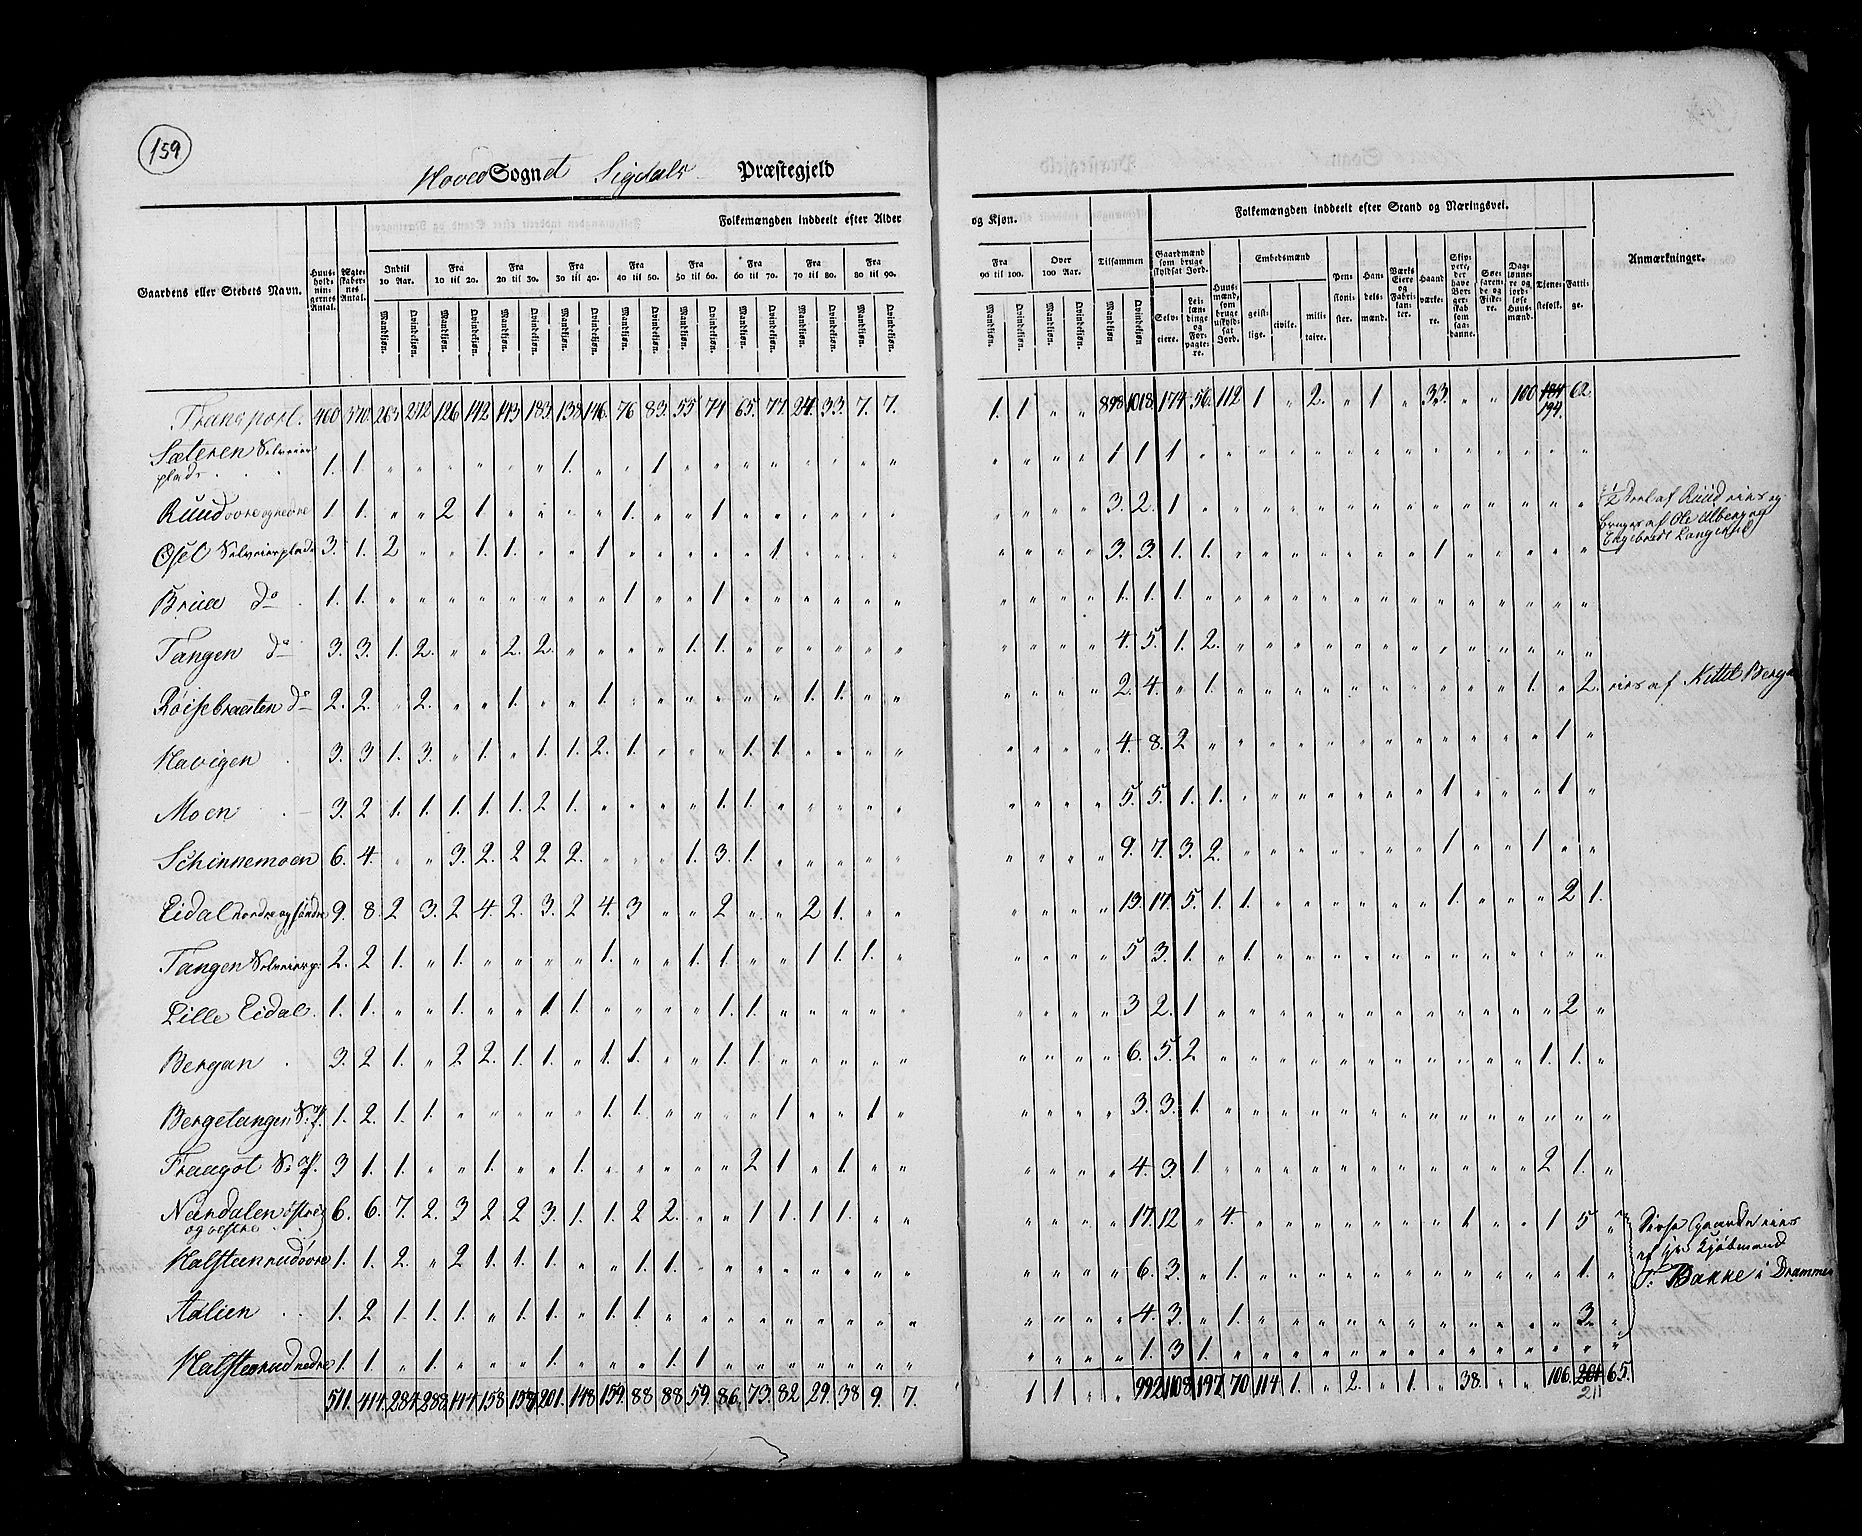 159
Hoved Sognet Sigdals Præstegjeld
Folkemængden inddeelt efter Alder og Kjøn.
Folkemængden inddeelt efter Stand og Næringsvei.
Gaardens eller Stedets Navn. Huusholdningernes Antal. Ægteskabernes Antal. Indtil 10 Aar. Fra 10 til 20. Fra 20 til 30. Fra 30 til 40. Fra 40 til 50. Fra 50 til 60. Fra 60 til 70. Fra 70 til 80. Fra 80 til 90. Fra 90 til 100. Over 100 Aar. Tilsammen
Mandkjøn. Qvindekjøn. Mandkjøn. Qvindekjøn. Mandkjøn. Qvindekjøn. Mandkjøn. Qvindekjøn. Mandkjøn. Qvindekjøn. Mandkjøn. Qvindekjøn. Mandkjøn. Qvindekjøn. Mandkjøn. Qvindekjøn. Mandkjøn. Qvindekjøn. Mandkjøn. Qvindekjøn. Mandkjøn. Qvindekjøn. Mandkjøn Qvindekjøn.
Gaardmænd som bruge skyldsat Jord. Selveiere. Leilændinge og Forpagtere. Huusmænd, som bruge uskyldsat Jord. Embedsmænd geistlige. civile. militaire. Pensionister. Handelsmænd. Værks Eiere og Fabrikanter. Haandværkere. Skippere, der have Borgerskab som saadanne. Søefarende og Fiskere. Daglønnere og jordløse Huusmænd. Tjenestefolk. Fattige. Anmærkninger.
Transport. 460 370 263 272 126 142 143 183 138 146 76 83 55 74 65 77 24 33 7. 7. 1. 1 " " 898 1018 174 56 112 1 " 2. " 1 " 33 " " 100 184 62
194.
Sæteren Selveier
plads 1. 1. " " " " " " 1. " " 1 " " " " " " " " " " " " 1 1 1 " " " " " " " " " " " " " " "
Ruud øvre og nedre 1. 1. " " 2 1 " " " " 1. " " 1 " " " " " " " " " " 3. 2. 1 " " " " " " " " " " " " " " " 1/2 Deel af Ruud eies og
bruges af Ole Alberg og
Engebret Langerud
Øsel Selveierplads 3. 1. 2 " " 1. 1. " " 1 " " " " " 1. " " " " " " " " 3. 3. 1. 1. " " " " " " " 1 " " " " "
Brua do 1. 1. " " " " " " " " 1 " " 1 " " " " " " " " " " 1. 1. 1 " " " " " " " " " " " " " " "
Tangen do 3. 3. 1. 2. " " 2. 2. " " " " 1. 1. " " " " " " " " " " 4. 5. 1. 2. " " " " " " " " " " " " " "
Røisebraaten do 2. 2. " 2. " " 1. " " 1. " " " " " " 1. 1. " " " " " " 2. 4. " 1. " " " " " " " " " " " 1. " 2. eies af Kittil Bergan
Havigen 3. 3 1. 3. " 1. " 1. 1. 2. 1. " " " 1. 1. " " " " " " " " 4. 8. 2 " " " " " " " " " " " " " 1 "
Moen 3. 2 1. 1. 1. 1. 1. 2 1. " " " " 1. 1. " " " " " " " " " 5. 5. 1. 1. " " " " " " " 1 " " " " 1 "
Schinnemoen 6. 4. " " 3. 2. 2 2 2. " " " 1. 3. 1. " " " " " " " " " 9. 7. 3. 2. " " " " " " " 1 " " 1 " "
Eidal nordre og søndre 9. 8. 2 3. 2 4. 2. 3. 2 4. 3 " " 2 " " 2 1. " " " " " " 13. 17. 5. 1. 1. " " " " " " 1. " " " 2 1.
Tangen Selveierp. 2. 2 1. " 1. " " " " 1. " " 1. 1. " " 1 1. 1. " " " " " 5 3. 1. " 1. " " " " " " " " " " " " "
Lille Eidal. 1. 1. " " 1. " " 1 1. " " " " 1. 1. " " " " " " " " " 3 2. 1 " " " " " " " " " " " " " 2 "
Bergan 3. 2 1. " 2 2. 1. 1. " 1. 1. " " 1. 1. " " " " " " " " " 6. 5. 2 " " " " " " " " " " " " 1. 1. "
Bergetangen S: pl. 1. 2. 1. 1. " " " " " 1. 1. " " " " 1 " " 1 " " " " " 3. 3. 1. " " " " " " " " " " " " " " "
Traagot S: pl. 3 1. 1. " " 1. " " 1. " " " " " 2 1. " 1. " " " " " " 4. 3. 1 " " " " " " " " " " " " 2 1. "
Nardalen østre
og vestre 6. 6. 7. 2. 3 2 2 3. 1. 1. 2 2. " " 1 1. 1. 1. " " " " " " 17. 12 " 4. " " " " " " " 1 " " 1 5 " Disse Gaarde eies
af hr Kjøbmand
T. Bakke i Drammen
Halsteenrud øvre 1. 1. 2. " 2 1. 1. 1. " " 1. 1. " " " " " " " " " " " " 6. 3. " 1. " " " " " " " " " " " " 1. "
Aslien 1. 2 1. 1. 1. " 1. 1. " 1. 1. " " " " " " " " " " " " " 4. 3. " 1. " " " " " " " " " " " " 3. "
Halsteenrud nedre 1. 1. " 1. " " " 1. " " " 1. 1 " " " " " " " " " " " 1. 3 1. " " " " " " " " " " " " " " "
511. 414. 287. 288. 144. 158. 158. 201. 148. 159. 88 88. 59. 86. 73. 82. 29. 38 9. 7. 1 1 " " 992 1108 197 70 114 1. " 2. " 1. " 38. " " 106. 201 65.
211